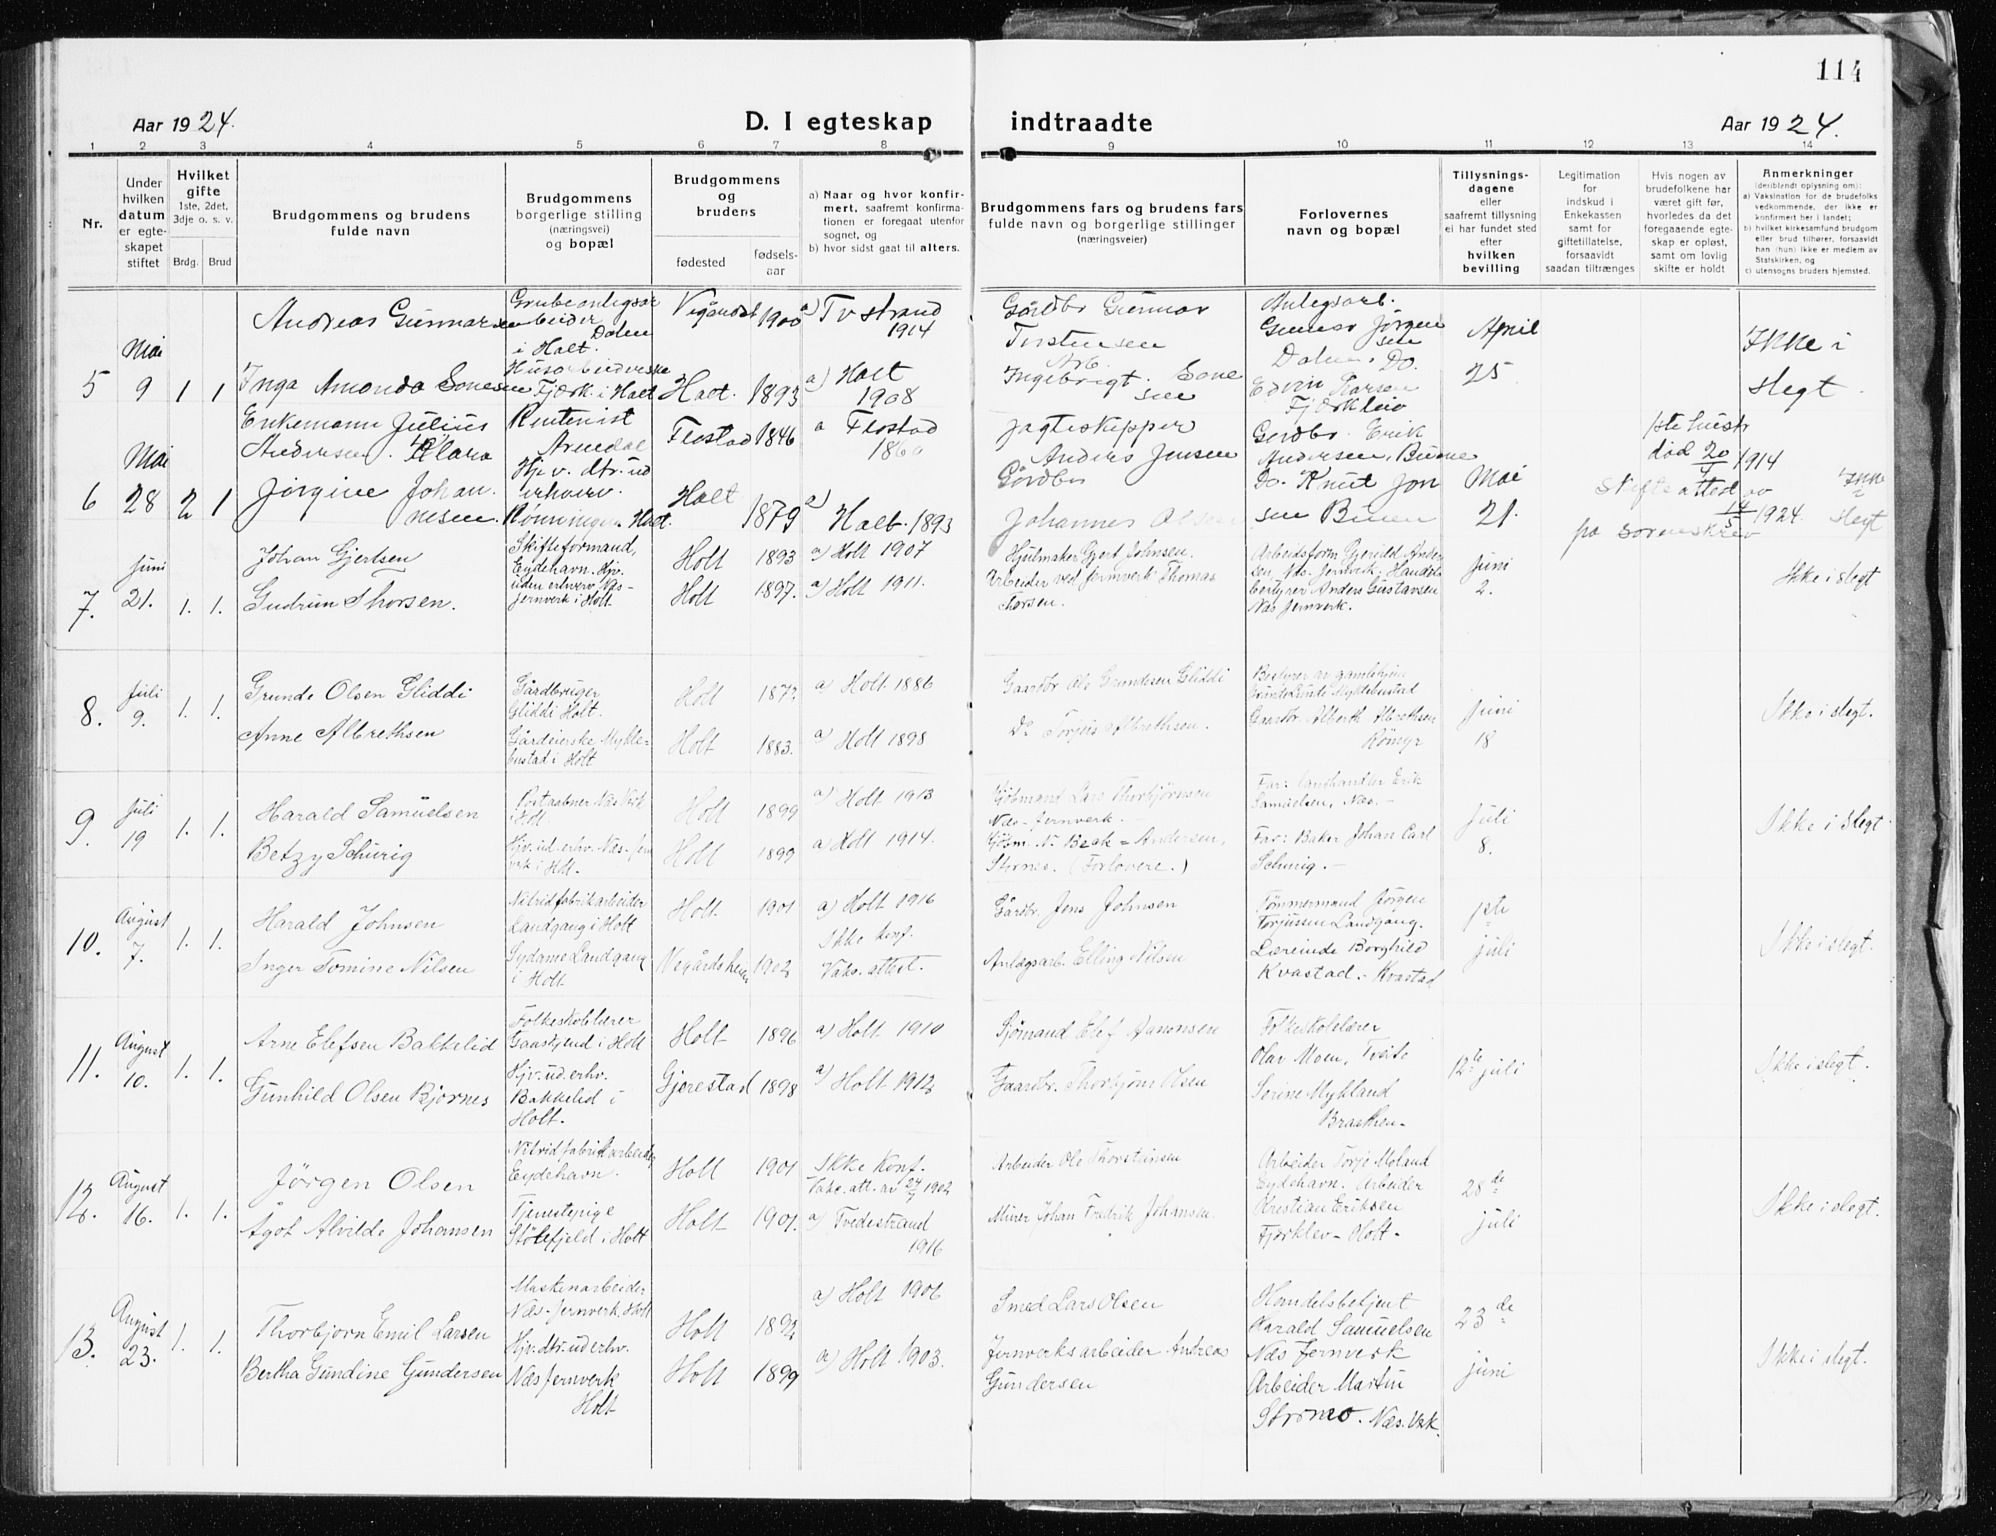 114
Aar 1924.
D. I egteskap indtraadte
Aar 1924.
1 2 3 4 5 6 7 8 9 10 11 12 13 14
Nr.
Under hvilken datum er egteskapet stiftet
Hvilket gifte
1ste, 2det, 3dje o. s. v.
Brdg. Brud
Brudgommens og brudens
fulde navn
Brudgommens
borgerlige stilling
(næringsvei)
og bopæl
Brudgommens
og
brudens
fødested
fødsels-
aar
a) Naar og hvor konfir-
mert, saafremt konfirma-
tionen er foregaat utenfor
sognet, og
b) hvor sidst gaat til alters.
Brudgommens fars og brudens fars
fulde navn og borgerlige stillinger
(næringsveier)
Forlovernes
navn og bopæl
Tillysnings-
dagene
eller
saafremt tillysning
ei har fundet sted
efter
hvilken
bevilling
Legitimation
for
indskud i
Enkekassen
samt for
giftetillatelse,
forsaavidt
saadan tiltrænges
Hvis nogen av
brudefolkene har
været gift før,
hvorledes da det
foregaaende egte-
skap er opløst,
samt om lovlig
skifte er holdt
Anmerkninger
(deriblendt oplysning om):
a) Vaksination for de brudefolks
vedkommende, der ikke er
konfirmert her i landet;
b) hvilket kirkesamfund brudgom
eller brud tilhører, forsaavidt
han (hun) ikke er medlem av
Statskirken, og
c) utensogns bruders hjemsted.
5
Mai
9
1 1
Andreas Gunnarsen
arbeider Dalen
i Holt.
1900
a) Tvstrand
1914
Gårdbr Gunnar
Torstensen
Anlegsarb.
Gunnar Jörgen
sen
Dalen. Do.
April
25
Ikke i
slegt.
Inga Amanda Sonesen
Fjærk. i Holt
Holt. 1893
a) Holt
1908
Arb.
Ingebrigt Sone
sen
Edvin Larsen
Fjærkleiv
6
Mai
28
2 1
Enkemann Julius
Andersen. Klara
Rentenist
Arendal
Flostad 1846
a Flostad
Jagteskipper
Anders Jensen
Gardbr. Erik
Andersen, Buene
Mai
21.
1ste hustr
död 20/4 1914
Skifteattest av
14/5 1924.
på sorenskrev
Ikke
i
slegt
Jørgine Johan
nesen.
Hjv. dtr. ud
erhverv.
Rønningen Holt.
Holt 1879
a) Holt. 1893
Gårdbr
Johannes Olsen
Do. Knut Jon
sen Buen
7.
Juni
21.
1. 1.
Johan Gjertsen
Skifteformand,
Eydehavn. Hjv.
Holt 1893
a) Holt 1907
Hjulmaker Gjert Johnsen.
Juni
2.
Ikke i slegt
Gudrun Thorsen.
uden erhverv Næs-
jernverk i Holt.
Holt 1897.
a) Holt 1911.
Arbeider ved jernverk Thomas
Torsen.
Anders Gustavsen
Næs jernverk.
8.
Juli
9.
1. 1.
Grunde Olsen Gliddi
Gårdbruger
Gliddi Holt.
Holt 1872.
a) Holt 1886
Gaardbr Ole Grundesen Gliddi
Bestyrer av gamlehjem
Myklebustad
Juni
18
Ikke i slegt.
Anne Albrethsen
Gårdeierske Mykle-
bustad i Holt
Holt 1883.
a) Holt 1898
Do Torjus Albrethsen.
Gaardbr. Alberth Albrethsen
Rømyr
9.
Juli
19
1. 1.
Harald Samuelsen
Postaabner Næs Verk
i Holt.
Holt 1899
a) Holt 1913
Kjøbmand Lars Thorbjørnsen
Næs-Jernverk. -
Far: Landhandler Erik
Samuelsen, Næs. -
Juli
8.
Ikke i slegt.
Betzy Schurig
Hjv. ud erhv. Næs-jern
verk i Holt.
Holt 1899
a) Holt 1914.
Kjøbm. N. Beck = Andersen,
Stornes. (Forlovere.)
Far: Baker Johan Carl
Schurig. -
10.
August
7.
1. 1.
Harald Johnsen
Nitridfabrikarbeider
Landgang i Holt
Holt. 1901
a) Holt 1916
Gårdbr. Jens Johnsen
Tömmermand Jørgen
Torjussen Landgang.
1ste
juli
Ikke i slegt.
Inger Tomine Nilsen
Sydame Landgang
i Holt
Vegårdshein 1902
Ikke konf.
Vaks. attest.
Anlægsarb. Elling Nilsen
Lærerinde Borghild
Kvastad. - Kvastad
11.
August
10.
1. 1.
Arne Elefsen Bakkelid
Folkeskolelærer
i Holt
Holt 1896
a) Holt 1910
Sjömand Elef Aanonsen
Folkeskolelærer
Olav Moen, Tveite
12te juli
Ikke i slegt.
Gunhild Olsen Bjornes
Hjv. ud. erhv.
Bakkelid i
Holt.
Gjerestad 1898
a) Holt 1912
Gaardbr. Thorbjørn Olsen
Serine Mykland
Braathen-
12.
August
16.
1. 1.
Jørgen Olsen
Nitridfabrikarbeider
Eydehavn.
Holt 1901
Ikke Konf.
Vakc. att. av 24/9 1902
Arbeider Ole Thorstensen
Arbeider Torje Moland
Eydehavn. Arbeider
28de
juli
Ikke i slegt.
Ågot Alvilde Johansen
Tjenestepige
Stölefjeld i Holt
Holt 1901.
a) Tvedestrand
1916
Murer Johan Fredrik Johansen
Kristian Eriksen
Fjærklev - Holt -
13.
August
23.
1. 1.
Thorbjorn Emil Larsen
Maskinarbeider
Næs-jernverk. Holt
Holt 1892
a) Holt 1906
Smed Lars Olsen
Handelsbetjent
Harald Samuelsen
Næs Jernverk
23de
juni
Ikke i slegt.
Bertha Gundine Gundersen
Hjv. dtr. ud erhv.
Næs jernverk
Holt
Holt 1899
a) Holt 1903.
Jernverksarbeider Andreas
Gundersen
Arbeider Martin
Strömo. Næs. Verk.